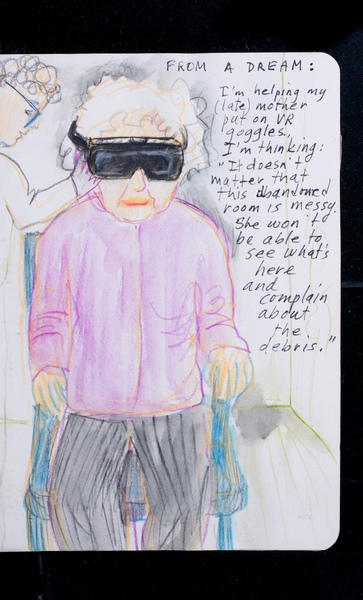 FROM A DREAM:
I'm helping my
(late) mother
put on VR
goggles.
I'm thinking:
"It doesn't
matter that
this abandoned
room is messy.
She won't
be able to
see what's
here
and
complain
about
the
debris."